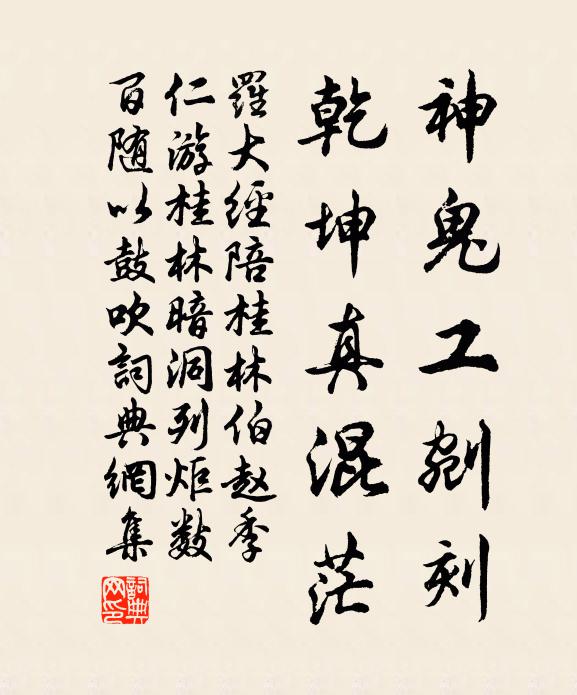 神鬼工剜刻
乾坤真混茫
羅大經陪桂林伯赵季
仁游桂林暗洞列炬数
百随以鼓吹詞典網集